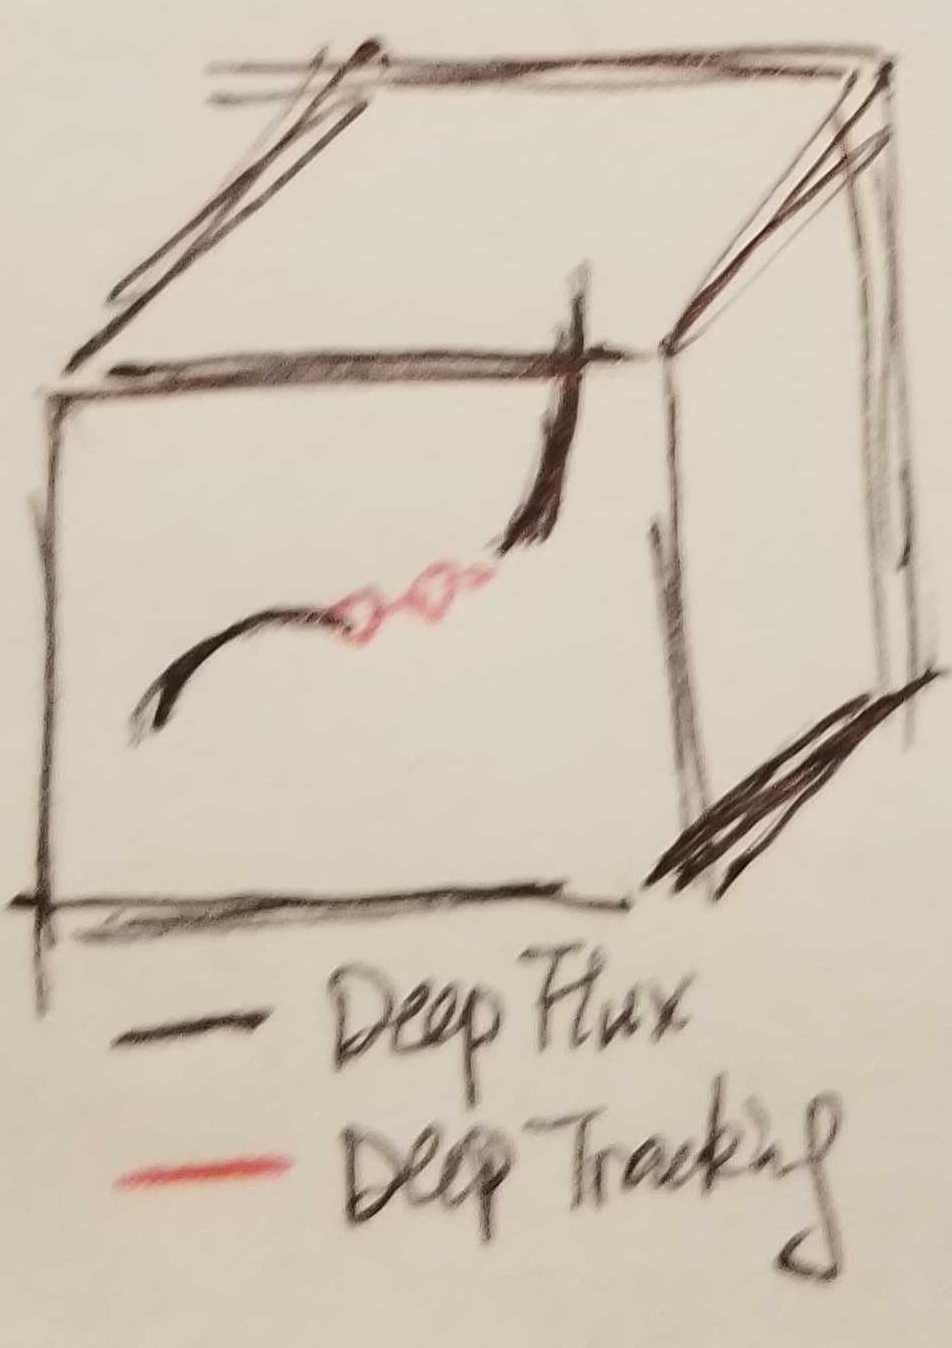 Deep Flux
Deep Tracking